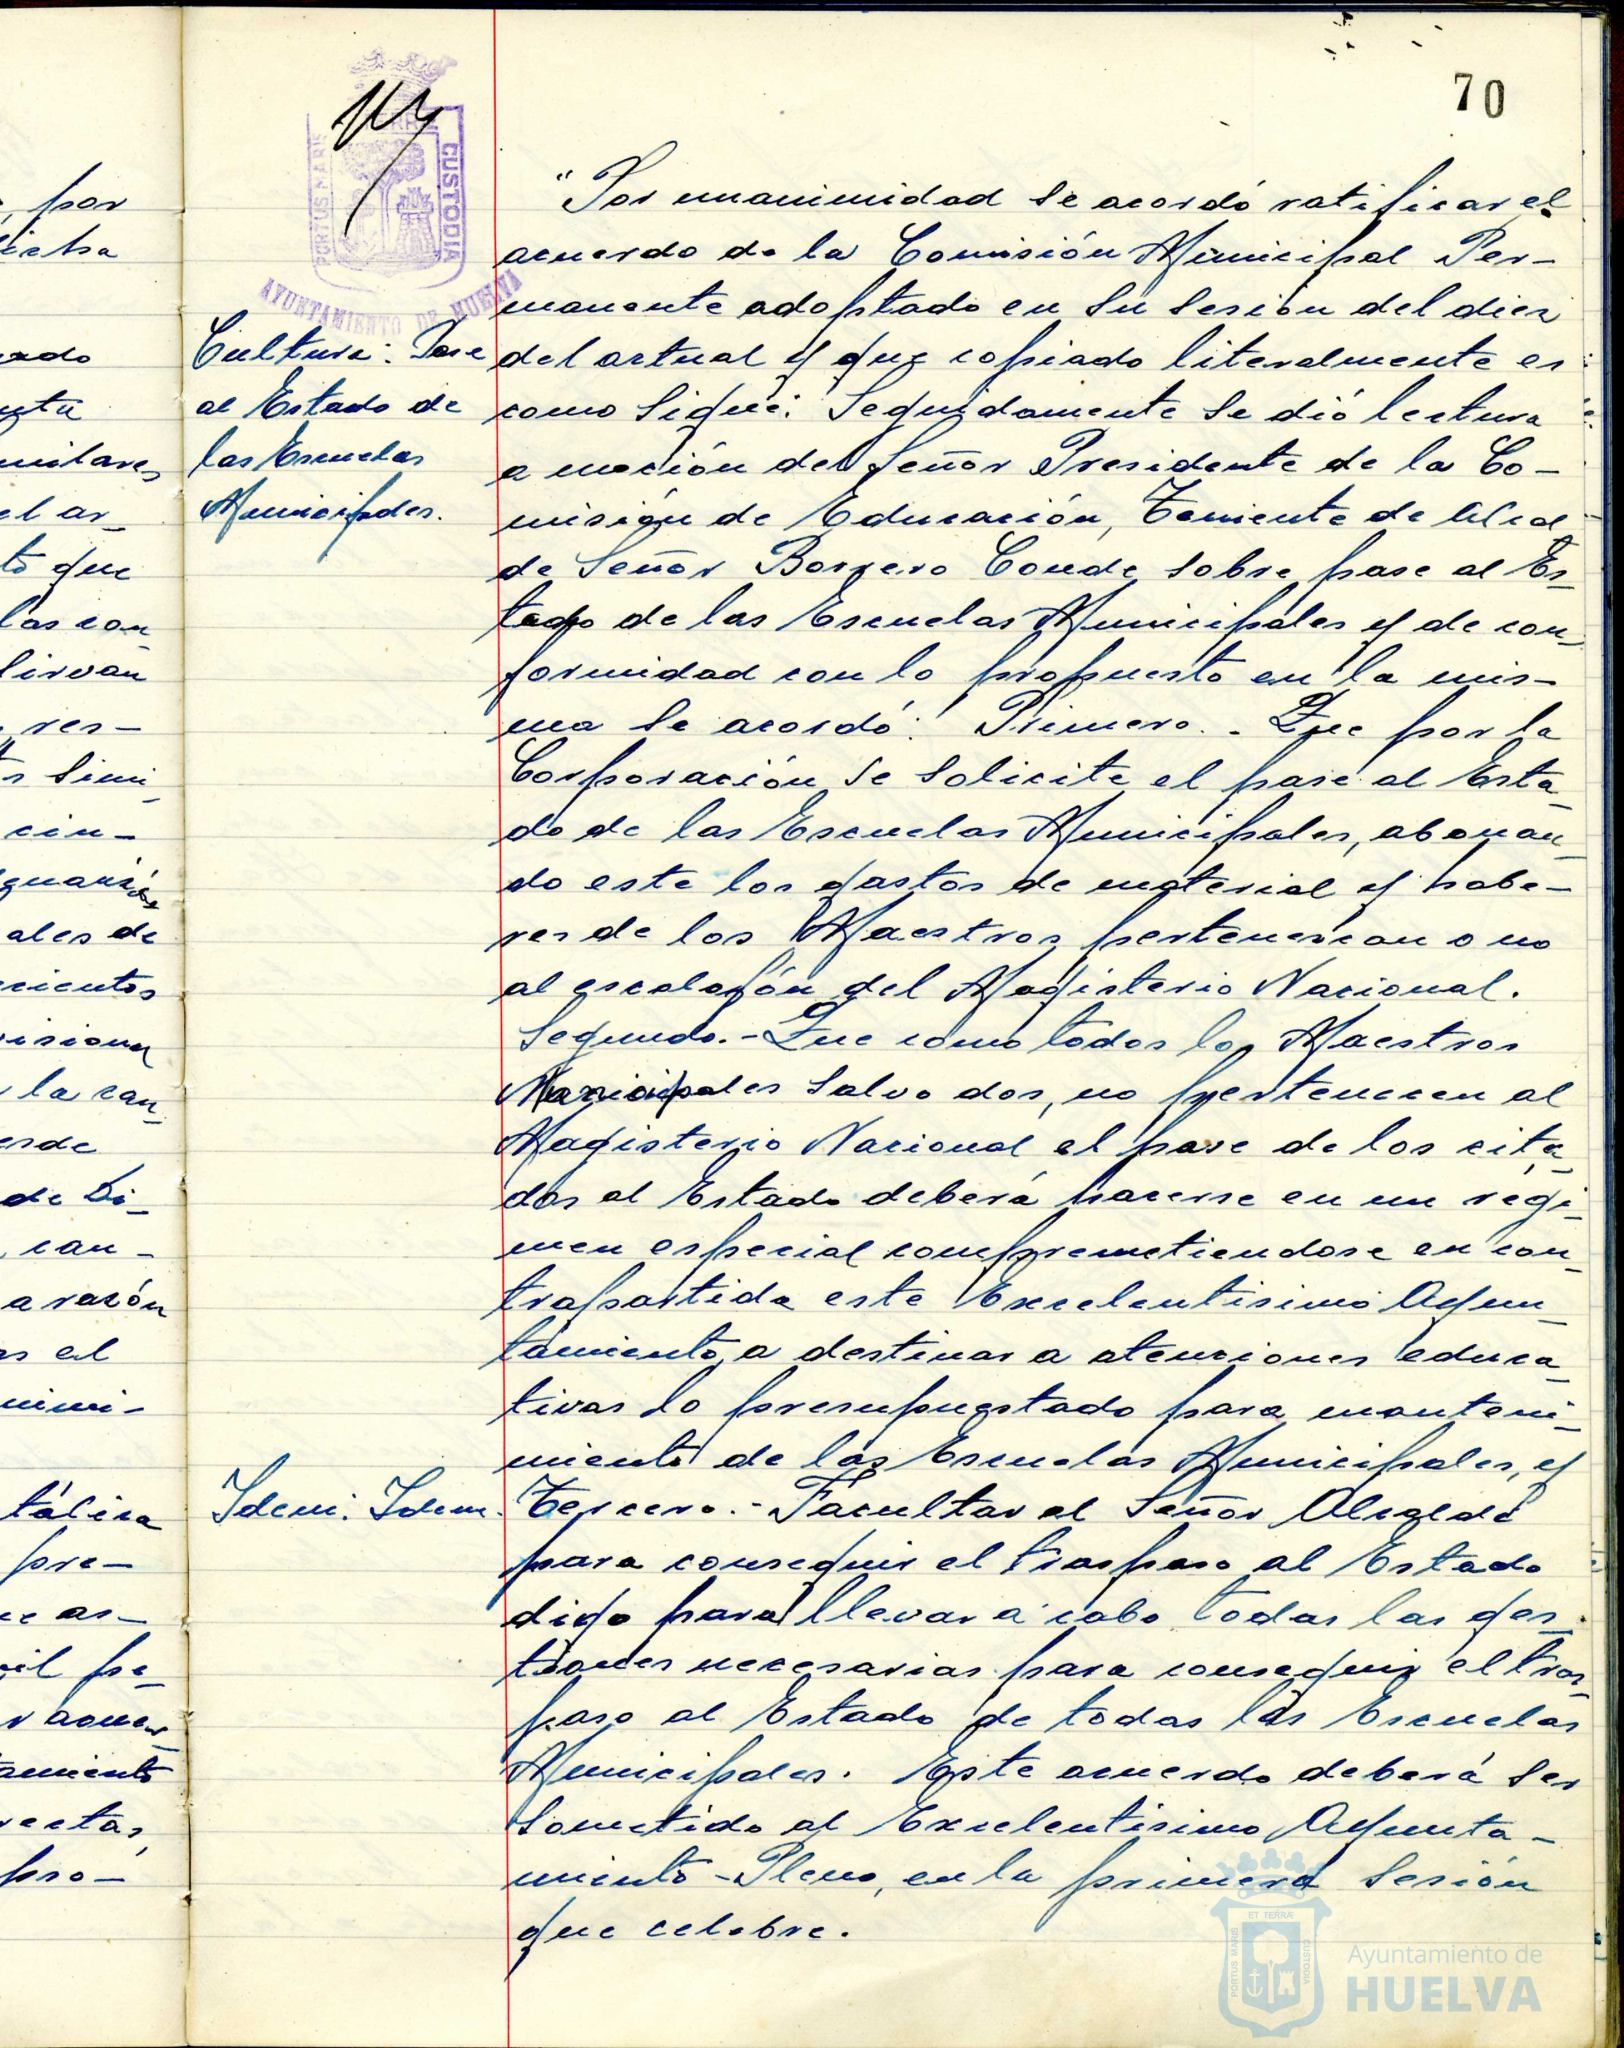 70
PORTUS MARIS
CUSTODIA
AYUNTAMIENTO DE HUELVA
Cultura: Pase
al Estado de
las Escuelas
Municipales.
Idem. Idem.
"Por unanimidad se acordó ratificar el
acuerdo de la Comisión Municipal Per-
manente adoptado en su sesión del diez
del actual y que copiado literalmente es
como sigue: Seguidamente se dió lectura
a moción del Señor Presidente de la Co-
misión de Educación, Teniente de Alcal
de Señor Borrero Conde sobre pase al Es-
tado de las Escuelas Municipales y de con-
formidad con lo propuesto en la mis-
ma se acordó: Primero.- Que por la
Corporación se solicite el pase al Esta-
do de las Escuelas Municipales, abonan-
do este los gastos de material y habe-
res de los Maestros pertenezcan o no
al escalafón del Magisterio Nacional.
Segundo.- Que como todos los Maestros
Municipales salvo dos, no pertenecen al
Magisterio Nacional el pase de los cita-
dos al Estado deberá hacerse en un regi-
men especial comprometiendose en con-
trapartida este Excelentisimo Ayun-
tamiento a destinar a atenciones educa-
tivas lo presupuestado para manteni-
miento de las Escuelas Municipales, y
Tercero.- Facultar al Señor Alcalde
para conseguir el traspaso al Estado
digo para llevar a cabo todas las ges-
tiones necesarias para conseguir el tras-
paso al Estado de todas las Escuelas
Municipales. Este acuerdo deberá ser
sometido al Excelentisimo Ayunta-
miento-Pleno, en la primera sesión
que celebre.
, por
icha
milares
el ar-
to que
las con-
sirvan
res-
simi-
cin-
ales de
cientos
la can-
de Di-
, can-
a razón
as el
pre-
ce as-
tamiento
pro-
ET TERRÆ
PORTUS MARIS
CUSTODIA
Ayuntamiento de
HUELVA